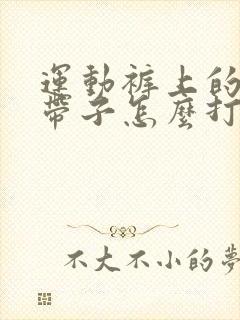 運動褲上的
帶子怎麼打
不大不小的夢